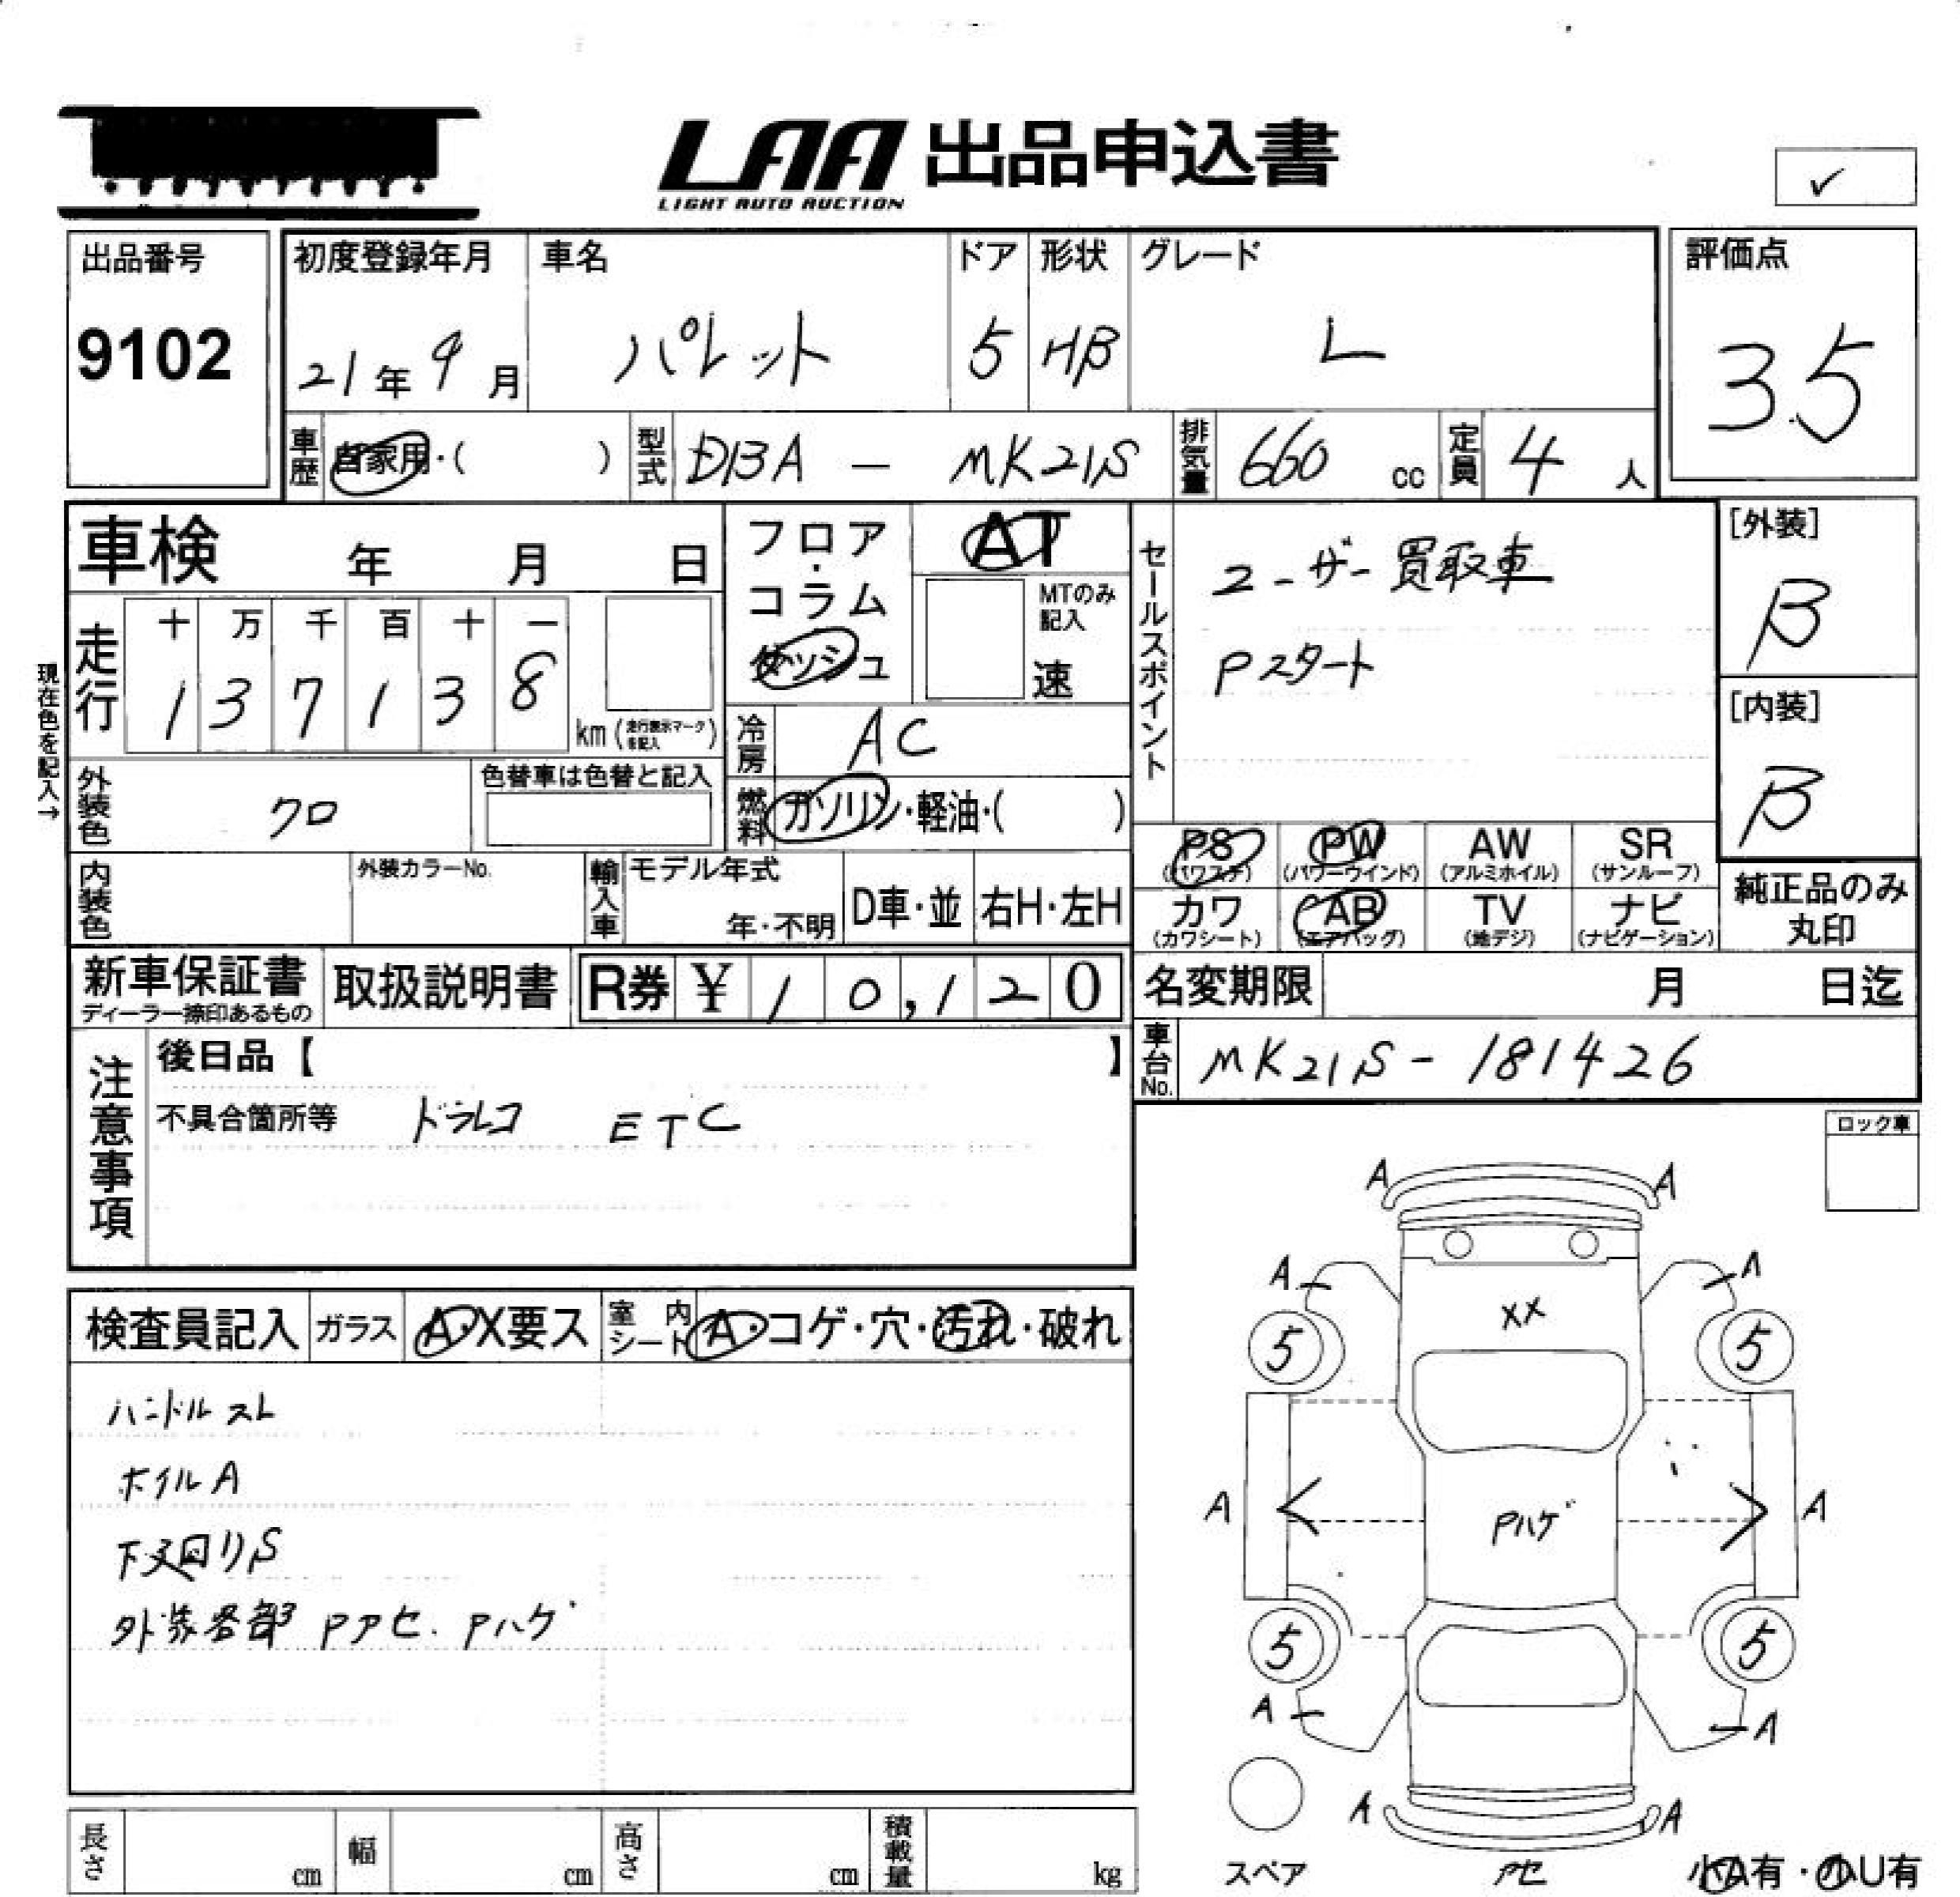 LAA 出品申込書
LIGHT AUTO AUCTION
✓
出品番号
9102
初度登録年月
21年 9月
車名
パレット
ドア
5
形状
HB
グレード
L
評価点
3.5
車歴 自家用・( )
型式 DBA - MK21S
排気量 660 cc
定員 4 人
車検 年 月 日
走行
十 万 千 百 十 一
1 3 7 1 3 8
km (走行表示マークを記入)
現在色を記入→
外装色 クロ
色替車は色替と記入
内装色
外装カラーNo.
フロア・コラム
ダッシュ
AT
MTのみ記入
速
冷房 AC
燃料 ガソリン・軽油・( )
輸入車 モデル年式
年・不明
D車・並
右H・左H
セールスポイント
ユーザー買取車
Pスタート
[外装]
B
[内装]
B
PS (パワステ)
PW (パワーウインド)
AW (アルミホイル)
SR (サンルーフ)
カワ (カワシート)
AB (エアバッグ)
TV (地デジ)
ナビ (ナビゲーション)
純正品のみ丸印
新車保証書
ディーラー捺印あるもの
取扱説明書
R券 ¥ 10,120
名変期限 月 日迄
車台No. MK21S-181426
注意事項
後日品【 】
不具合箇所等 ドラレコ ETC
ロック車
検査員記入
ガラス A・X要ス
室内シート A・コゲ・穴・汚れ・破れ
ハンドルスレ
ホイルA
下廻りS
外装各部 Pアセ. Pハゲ
A A
A A
XX
5 5
A Pハゲ A
5 5
A A
A A
スペア
アセ
小A有・小U有
長さ cm
幅 cm
高さ cm
積載量 kg